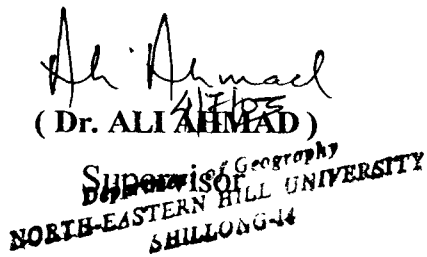 Ali Ahmad
4/7/05
( Dr. ALI AHMAD )
Supervisor
Department of Geography
NORTH-EASTERN HILL UNIVERSITY
SHILLONG-14